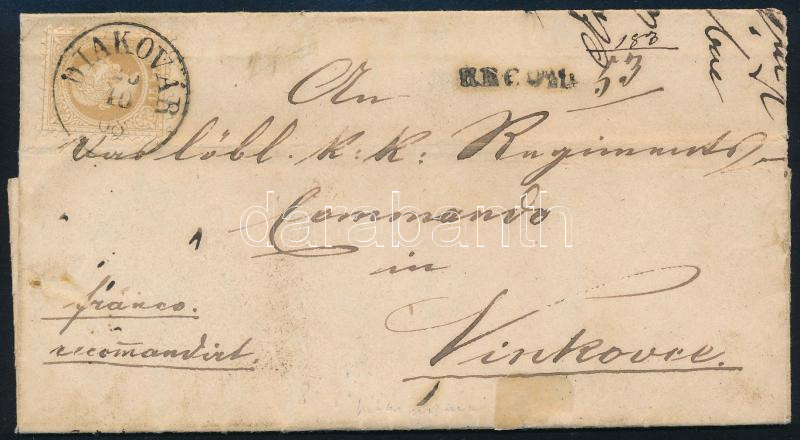 DIAKOVÁR
10
RECOM
183
53
An
Das löbl. k: k: Regiments-
Commando
in
Vinkovce.
franco.
recom̄andirt.
darabanth